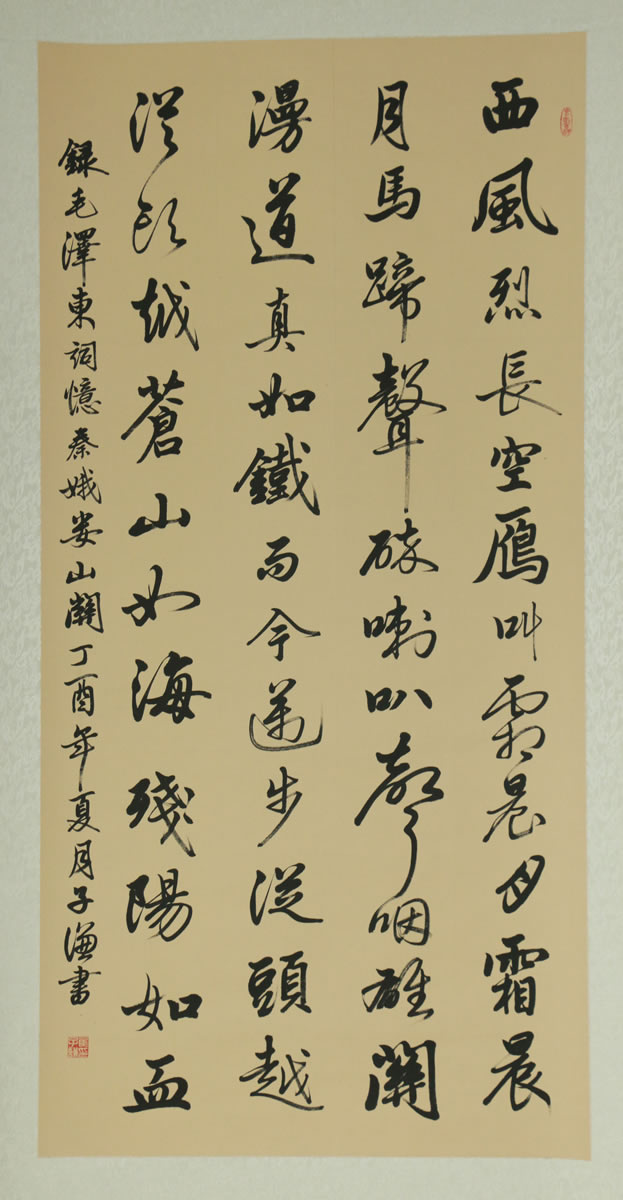 西風烈長空鴈叫霜晨月霜晨
月馬蹄聲碎喇叭聲咽雄關
漫道真如鐵而今邁步從頭越
從頭越蒼山如海殘陽如血
録毛澤東詞憶秦娥婁山關丁酉年夏月子謙書